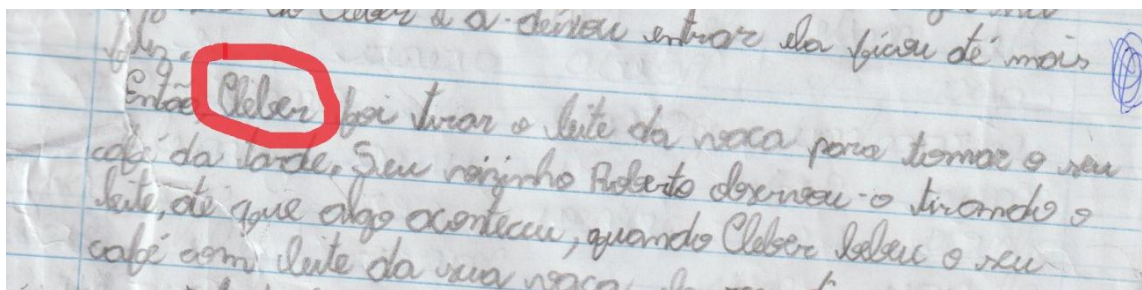 do Cleber e a deixou entrar ela ficou até mais
feliz.
Então Cleber foi tirar o leite da vaca para tomar o seu
café da tarde, Seu vizinho Roberto observou-o tirando o
leite, até que algo aconteceu, quando Cleber bebeu o seu
café com leite da sua vaca